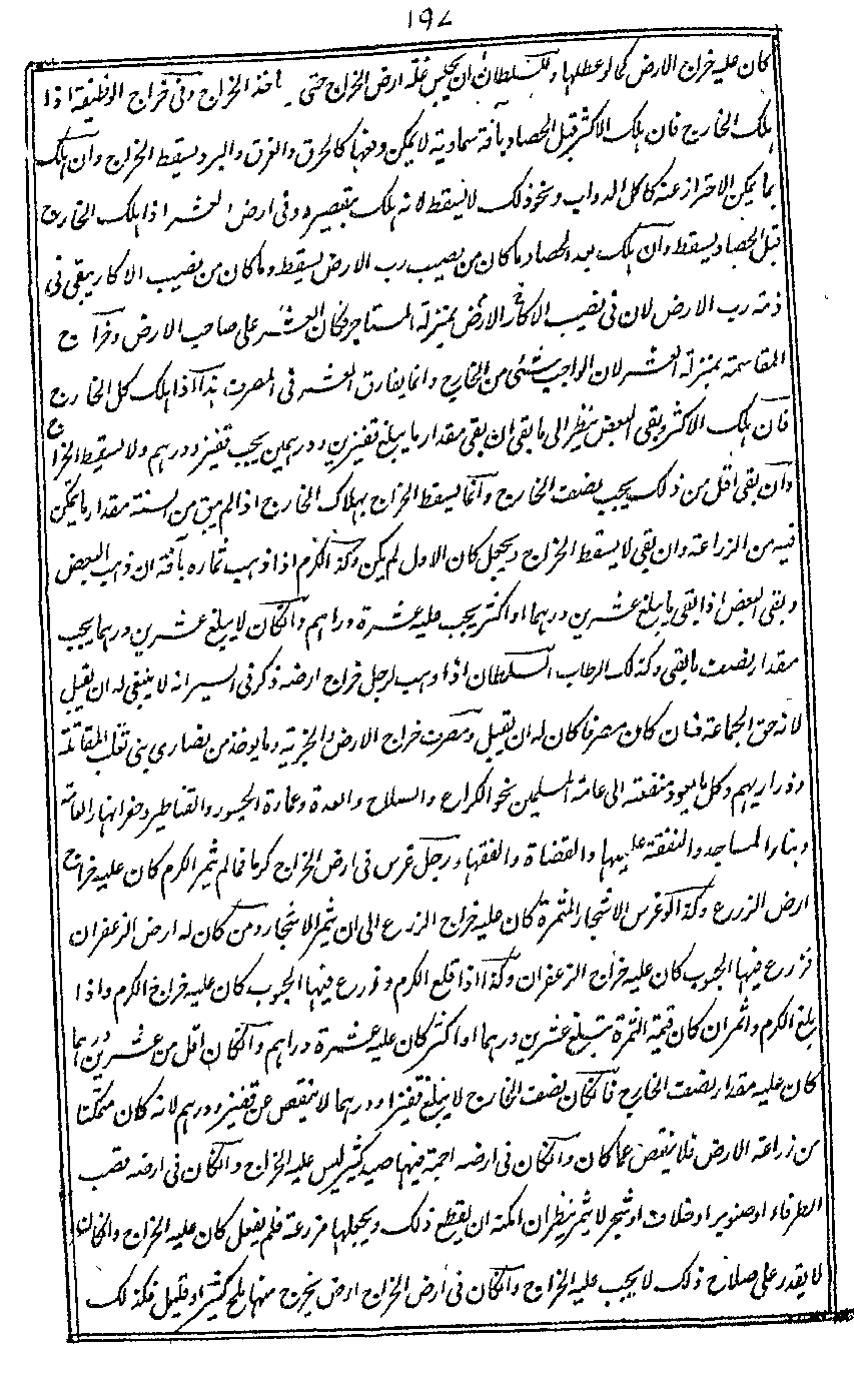 ١٩٢
كان عليه خراج الارض كما لو عطلها وللسلطان ان يحبس غلة ارض الخراج حتى ياخذ الخراج وفي خراج الوظيفة اذا
هلك الخارج فان هلك الاكثر قبل الحصاد بآفة سماوية لا يمكن دفعها كالحرق والغرق والبرد يسقط الخراج وان هلك
بما يمكن الاحتراز عنه كاكل الدواب ونحو ذلك لا يسقط لانه هلك بتقصيره وفي ارض العشر اذا هلك الخارج
قبل الحصاد يسقط وان هلك بعد الحصاد ما كان من نصيب رب الارض يسقط وما كان من نصيب الاكار يبقى في
ذمة رب الارض لان في نصيب الاكار الارض بمنزلة المستاجر فكان العشر على صاحب الارض وخراج
المقاسمة بمنزلة العشر لان الواجب شئ من الخارج وانما يفارق العشر في المصرف هذا اذا هلك كل الخارج
فان هلك الاكثر وبقي البعض ينظر الى ما بقي ان بقي مقدار ما يبلغ قفيزين ودرهمين يجب قفيز ودرهم ولا يسقط الخراج
وان بقي اقل من ذلك يجب نصف الخارج وانما يسقط الخراج بهلاك الخارج اذا لم يبق من السنة مقدار ما يمكن
فيه من الزراعة وان بقي لا يسقط الخراج ويجعل كان الاول لم يكن وكذا الكرم اذا ذهب ثماره بآفة ان ذهب البعض
وبقي البعض اذا بقي ما يبلغ عشرين درهما او اكثر يجب عليه عشرة دراهم وان كان لا يبلغ عشرين درهما يجب
مقدار نصف ما بقي وكذلك الرطاب السلطان اذا وهب لرجل خراج ارضه ذكر في السير انه لا ينبغي له ان يقبل
لانه حق الجماعة فان كان مصرفا كان له ان يقبل ومصرف خراج الارض والجزية وما يوخذ من نصارى بني تغلب المقاتلة
وذراريهم وكل ما يعود منفعته الى عامة المسلمين نحو الكراع والسلاح والعدة وعمارة الجسور والقناطير وحفر انهار العامة
وبناء المساجد والنفقة عليها والقضاة والفقها ورجل غرس في ارض الخراج كرما فما لم يثمر الكرم كان عليه خراج
ارض الزرع وكذا لو غرس الاشجار المثمرة كان عليه خراج الزرع الى ان يثمر الاشجار ومن كان له ارض الزعفران
فزرع فيها الحبوب كان عليه خراج الزعفران وكذا اذا قلع الكرم وزرع فيها الحبوب كان عليه خراج الكرم واذا
بلغ الكرم واثمر ان كان قيمة الثمرة تبلغ عشرين درهما او اكثر كان عليه عشرة دراهم وان كان اقل من عشرين درهما
كان عليه مقدار نصف الخارج فان كان نصف الخارج لا يبلغ قفيزا ودرهما لا ينقص عن قفيز ودرهم لانه كان متمكنا
من زراعة الارض فلا ينقص عما كان وان كان في ارضه اجمة فيها صيد كثير ليس عليه الخراج وان كان في ارضه قصب
الطرفاء او صنوبر او خلاف او شجر لا يثمر ينظر ان امكنه ان يقطع ذلك ويجعلها مزرعة فلم يفعل كان عليه الخراج وان كان
لا يقدر على صلاح ذلك لا يجب عليه الخراج وان كان في ارض الخراج ارض يخرج منها ملح كثير او قليل فكذلك